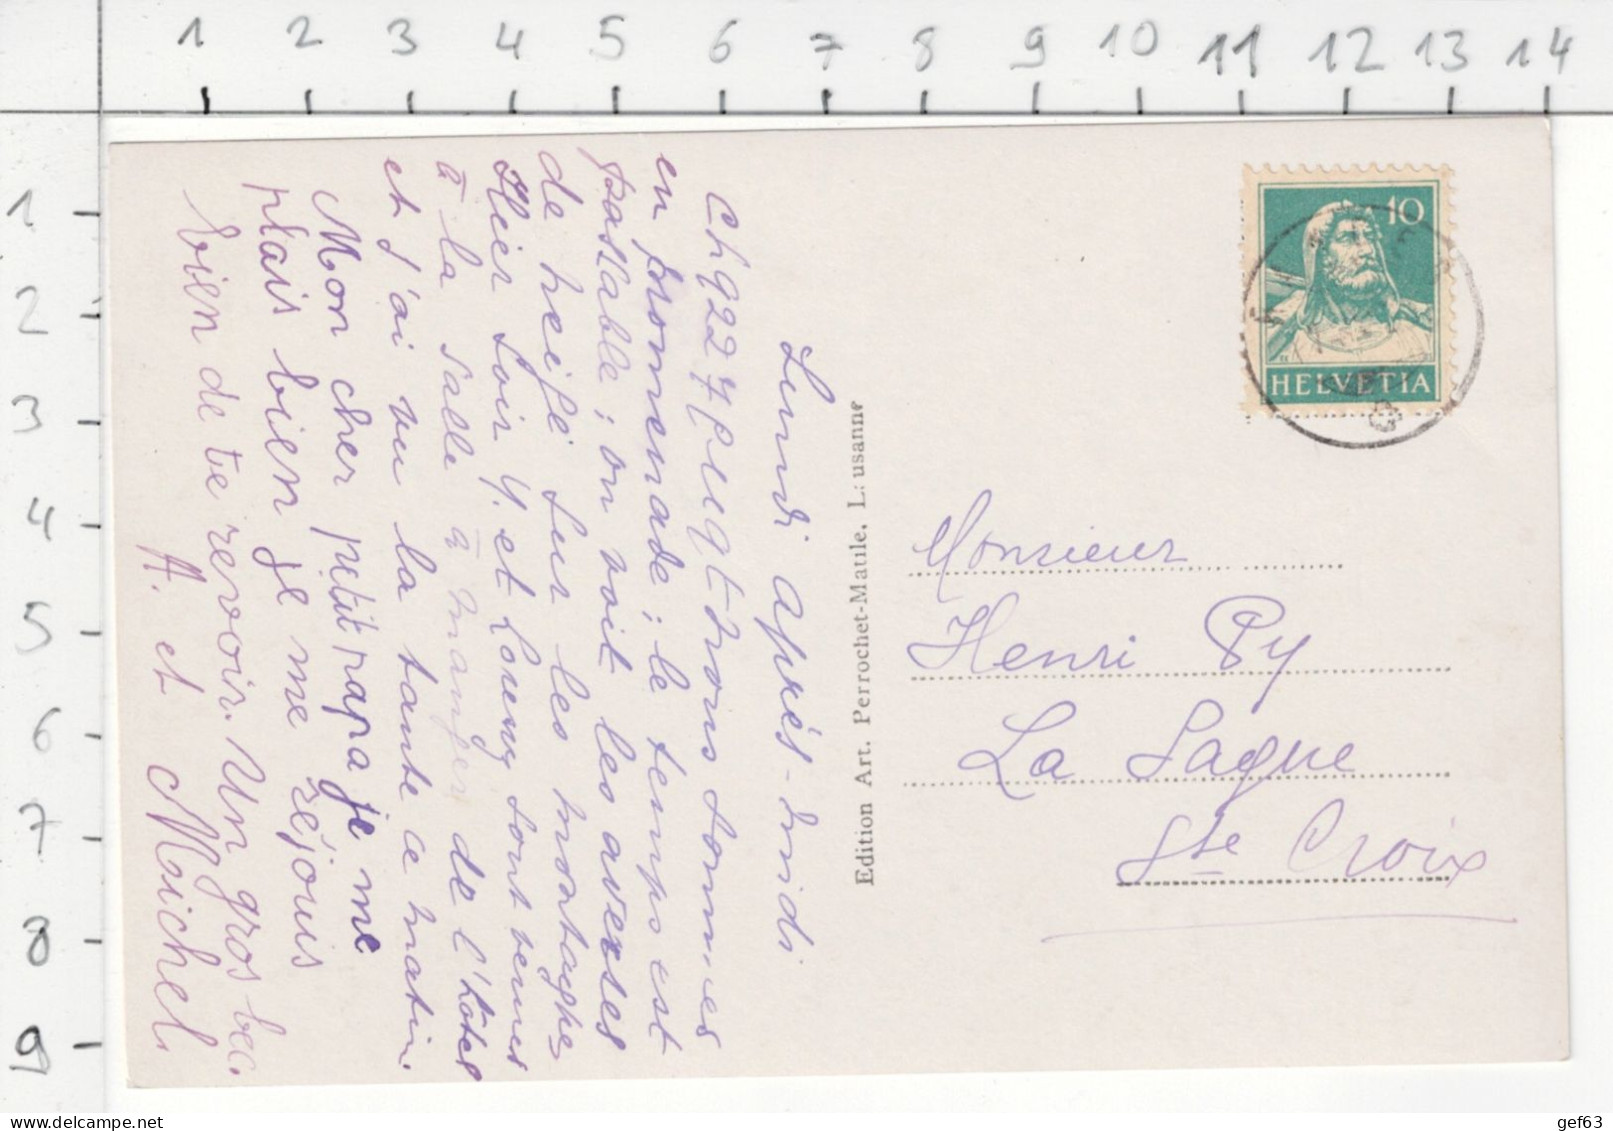 1 2 3 4 5 6 7 8 9 10 11 12 13 14
1
2
3
4
5
6
7
8
9
Lundi après-midi
sommes
en promenade; le temps est
passable; on voit les averses
de neige sur les montagnes
Hier soir Y. et Louny sont venus
à la salle à manger de l'hôtel
et j'ai vu la tante ce matin.
Mon cher petit papa je me
plais bien je me réjouis
bien de te revoir. Un gros bec.
A. et Michel.
Edition Art. Perrochet-Matile, L: usanne
10
HELVETIA
Monsieur
Henri Py
La Sagne
Ste Croix
gef63